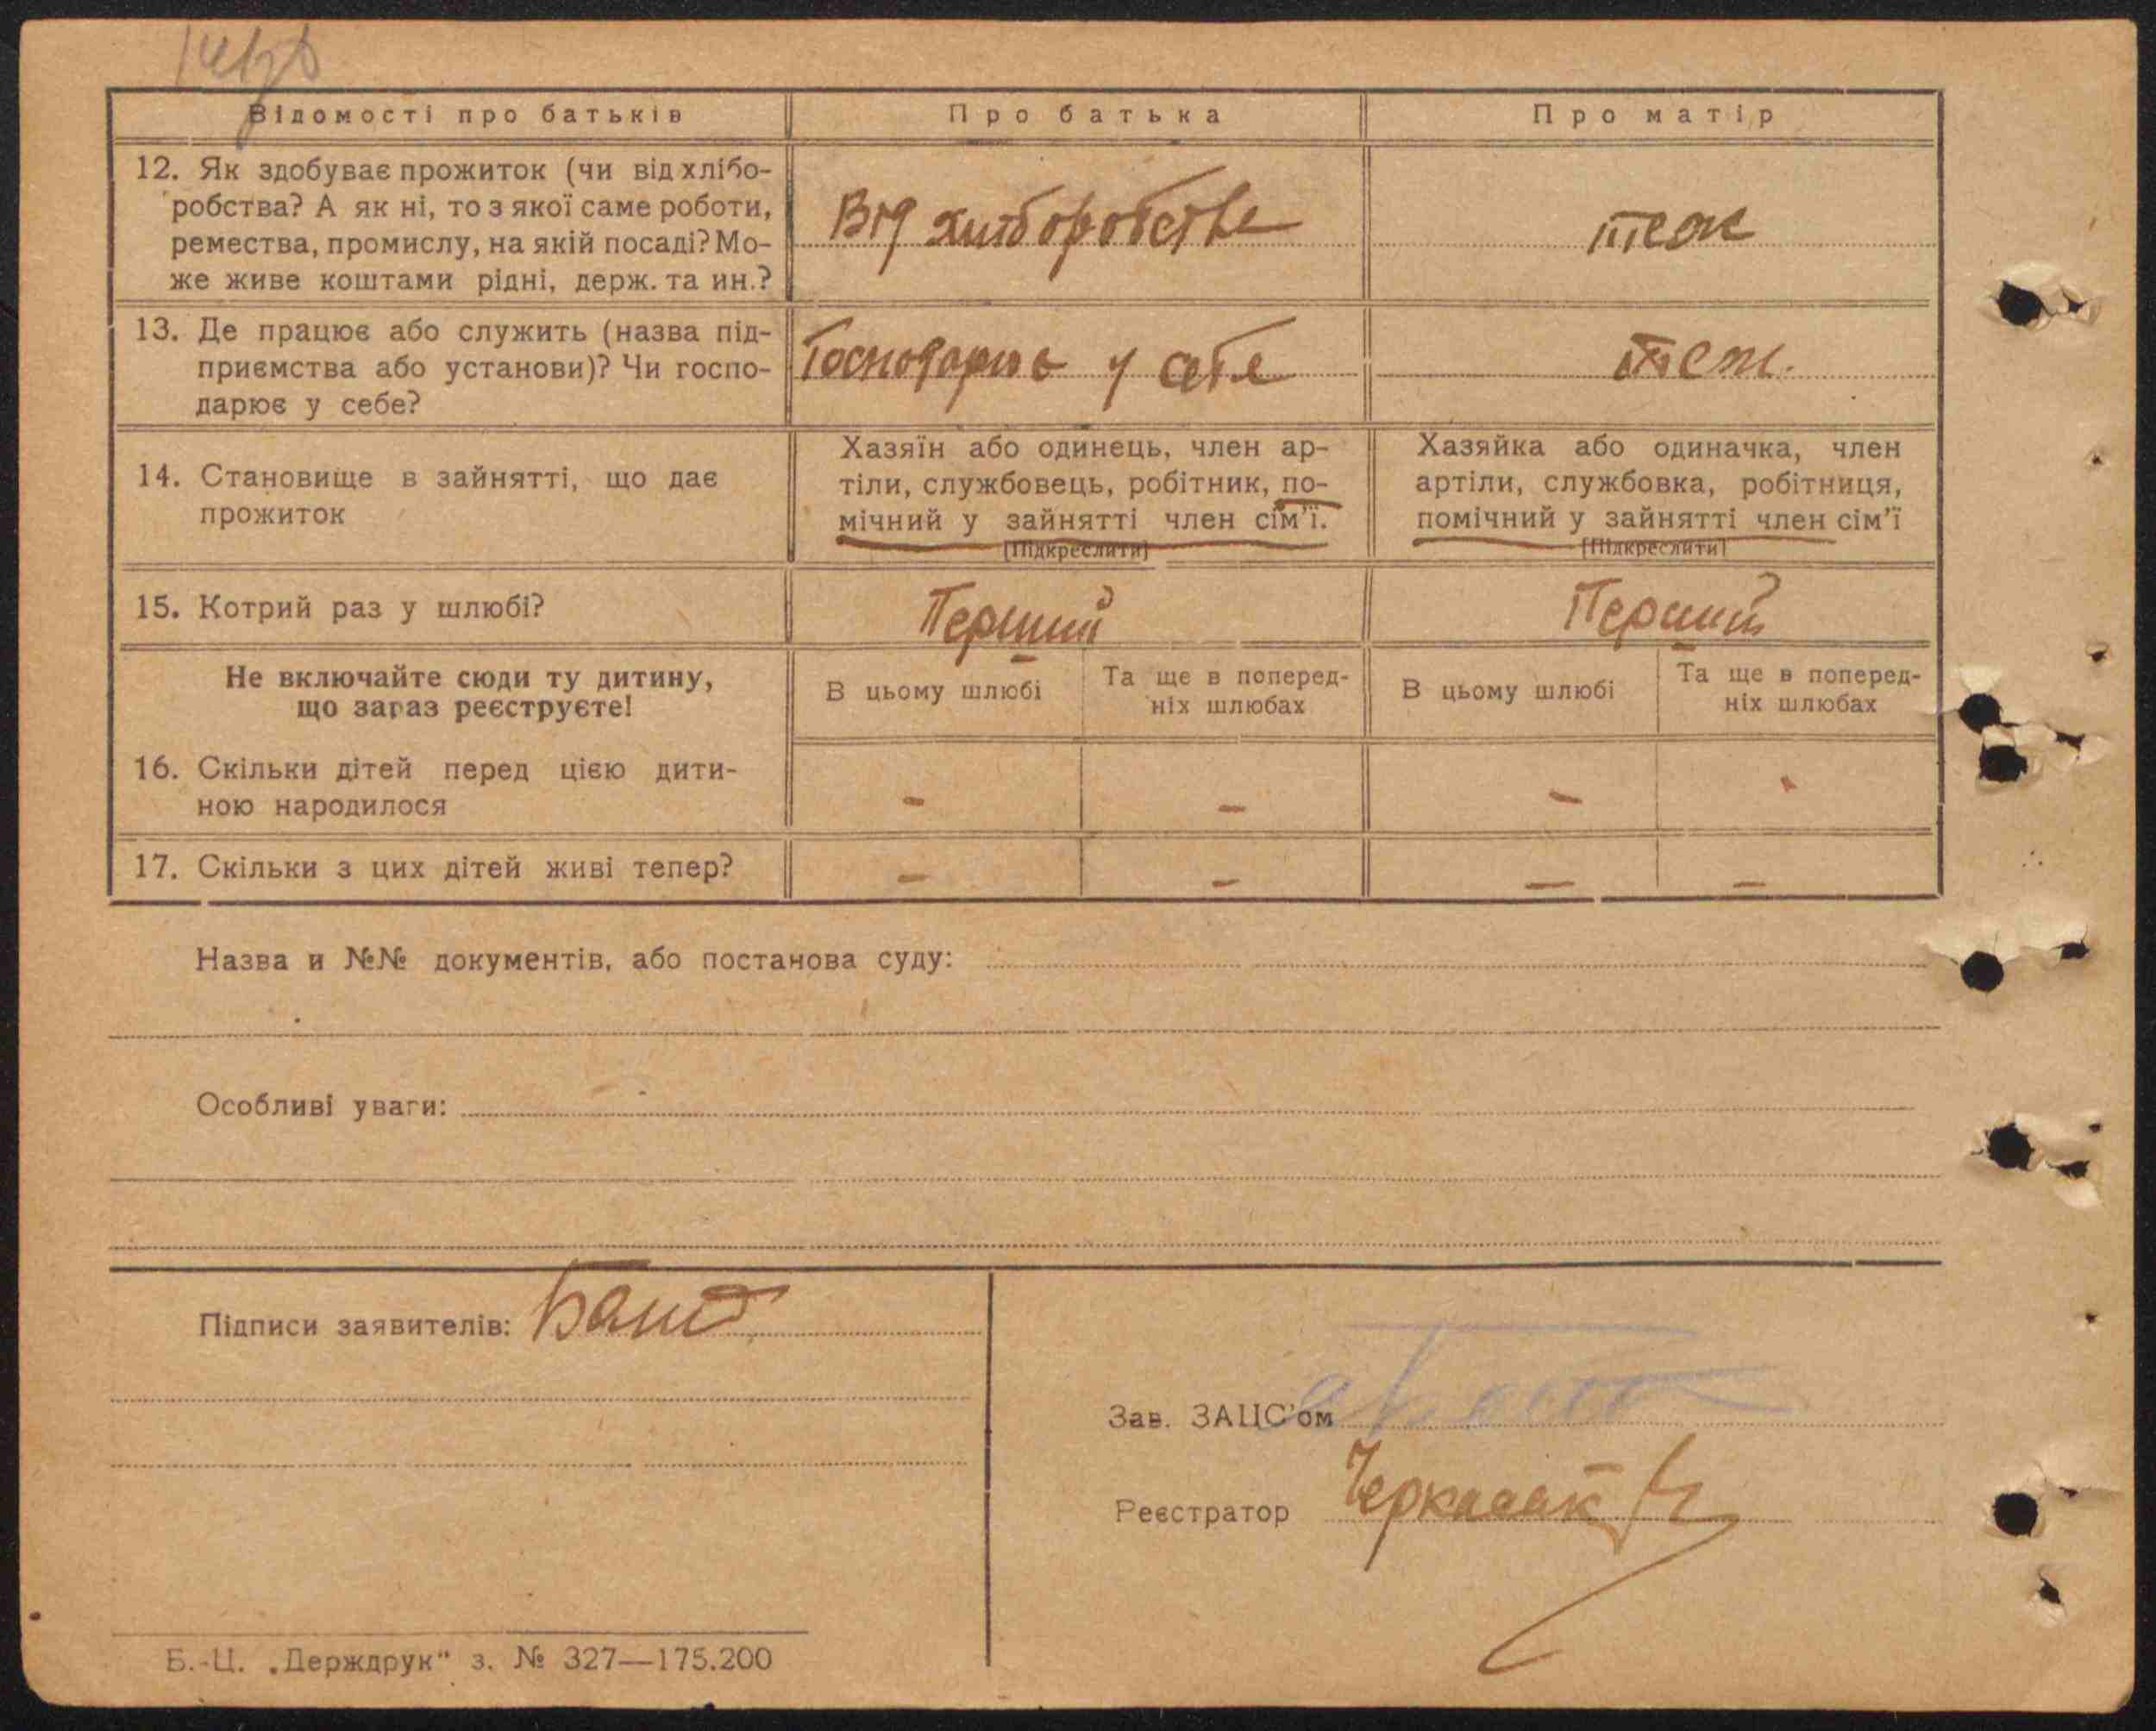 Відомості про батьків
Про батька
Про матір
12. Як здобуває прожиток (чи від хлібо-
робства? А як ні, то з якої саме роботи,
ремества, промислу, на якій посаді? Мо-
же живе коштами рідні, держ. та ин.?
Від хліборобства
теж
13. Де працює або служить (назва під-
приємства або установи)? Чи госпо-
дарює у себе?
Господарює у себе
теж.
14. Становище в зайнятті, що дає
прожиток
Хазяїн або одинець, член ар-
тіли, службовець, робітник, по-
мічний у зайнятті член сім'ї.
[Підкреслити]
Хазяйка або одиначка, член
артіли, службовка, робітниця,
помічний у зайнятті член сім'ї
[Підкреслити]
15. Котрий раз у шлюбі?
Перший
Перший
Не включайте сюди ту дитину,
що зараз реєструєте!
В цьому шлюбі
Та ще в поперед-
ніх шлюбах
В цьому шлюбі
Та ще в поперед-
ніх шлюбах
16. Скільки дітей перед цією дити-
ною народилося
- - - -
17. Скільки з цих дітей живі тепер?
- - - -
Назва и №№ документів, або постанова суду:
Особливі уваги:
Підписи заявителів:
Зав. ЗАЦС'ом
Реєстратор
Б.-Ц. „Держдрук" з. № 327—175.200